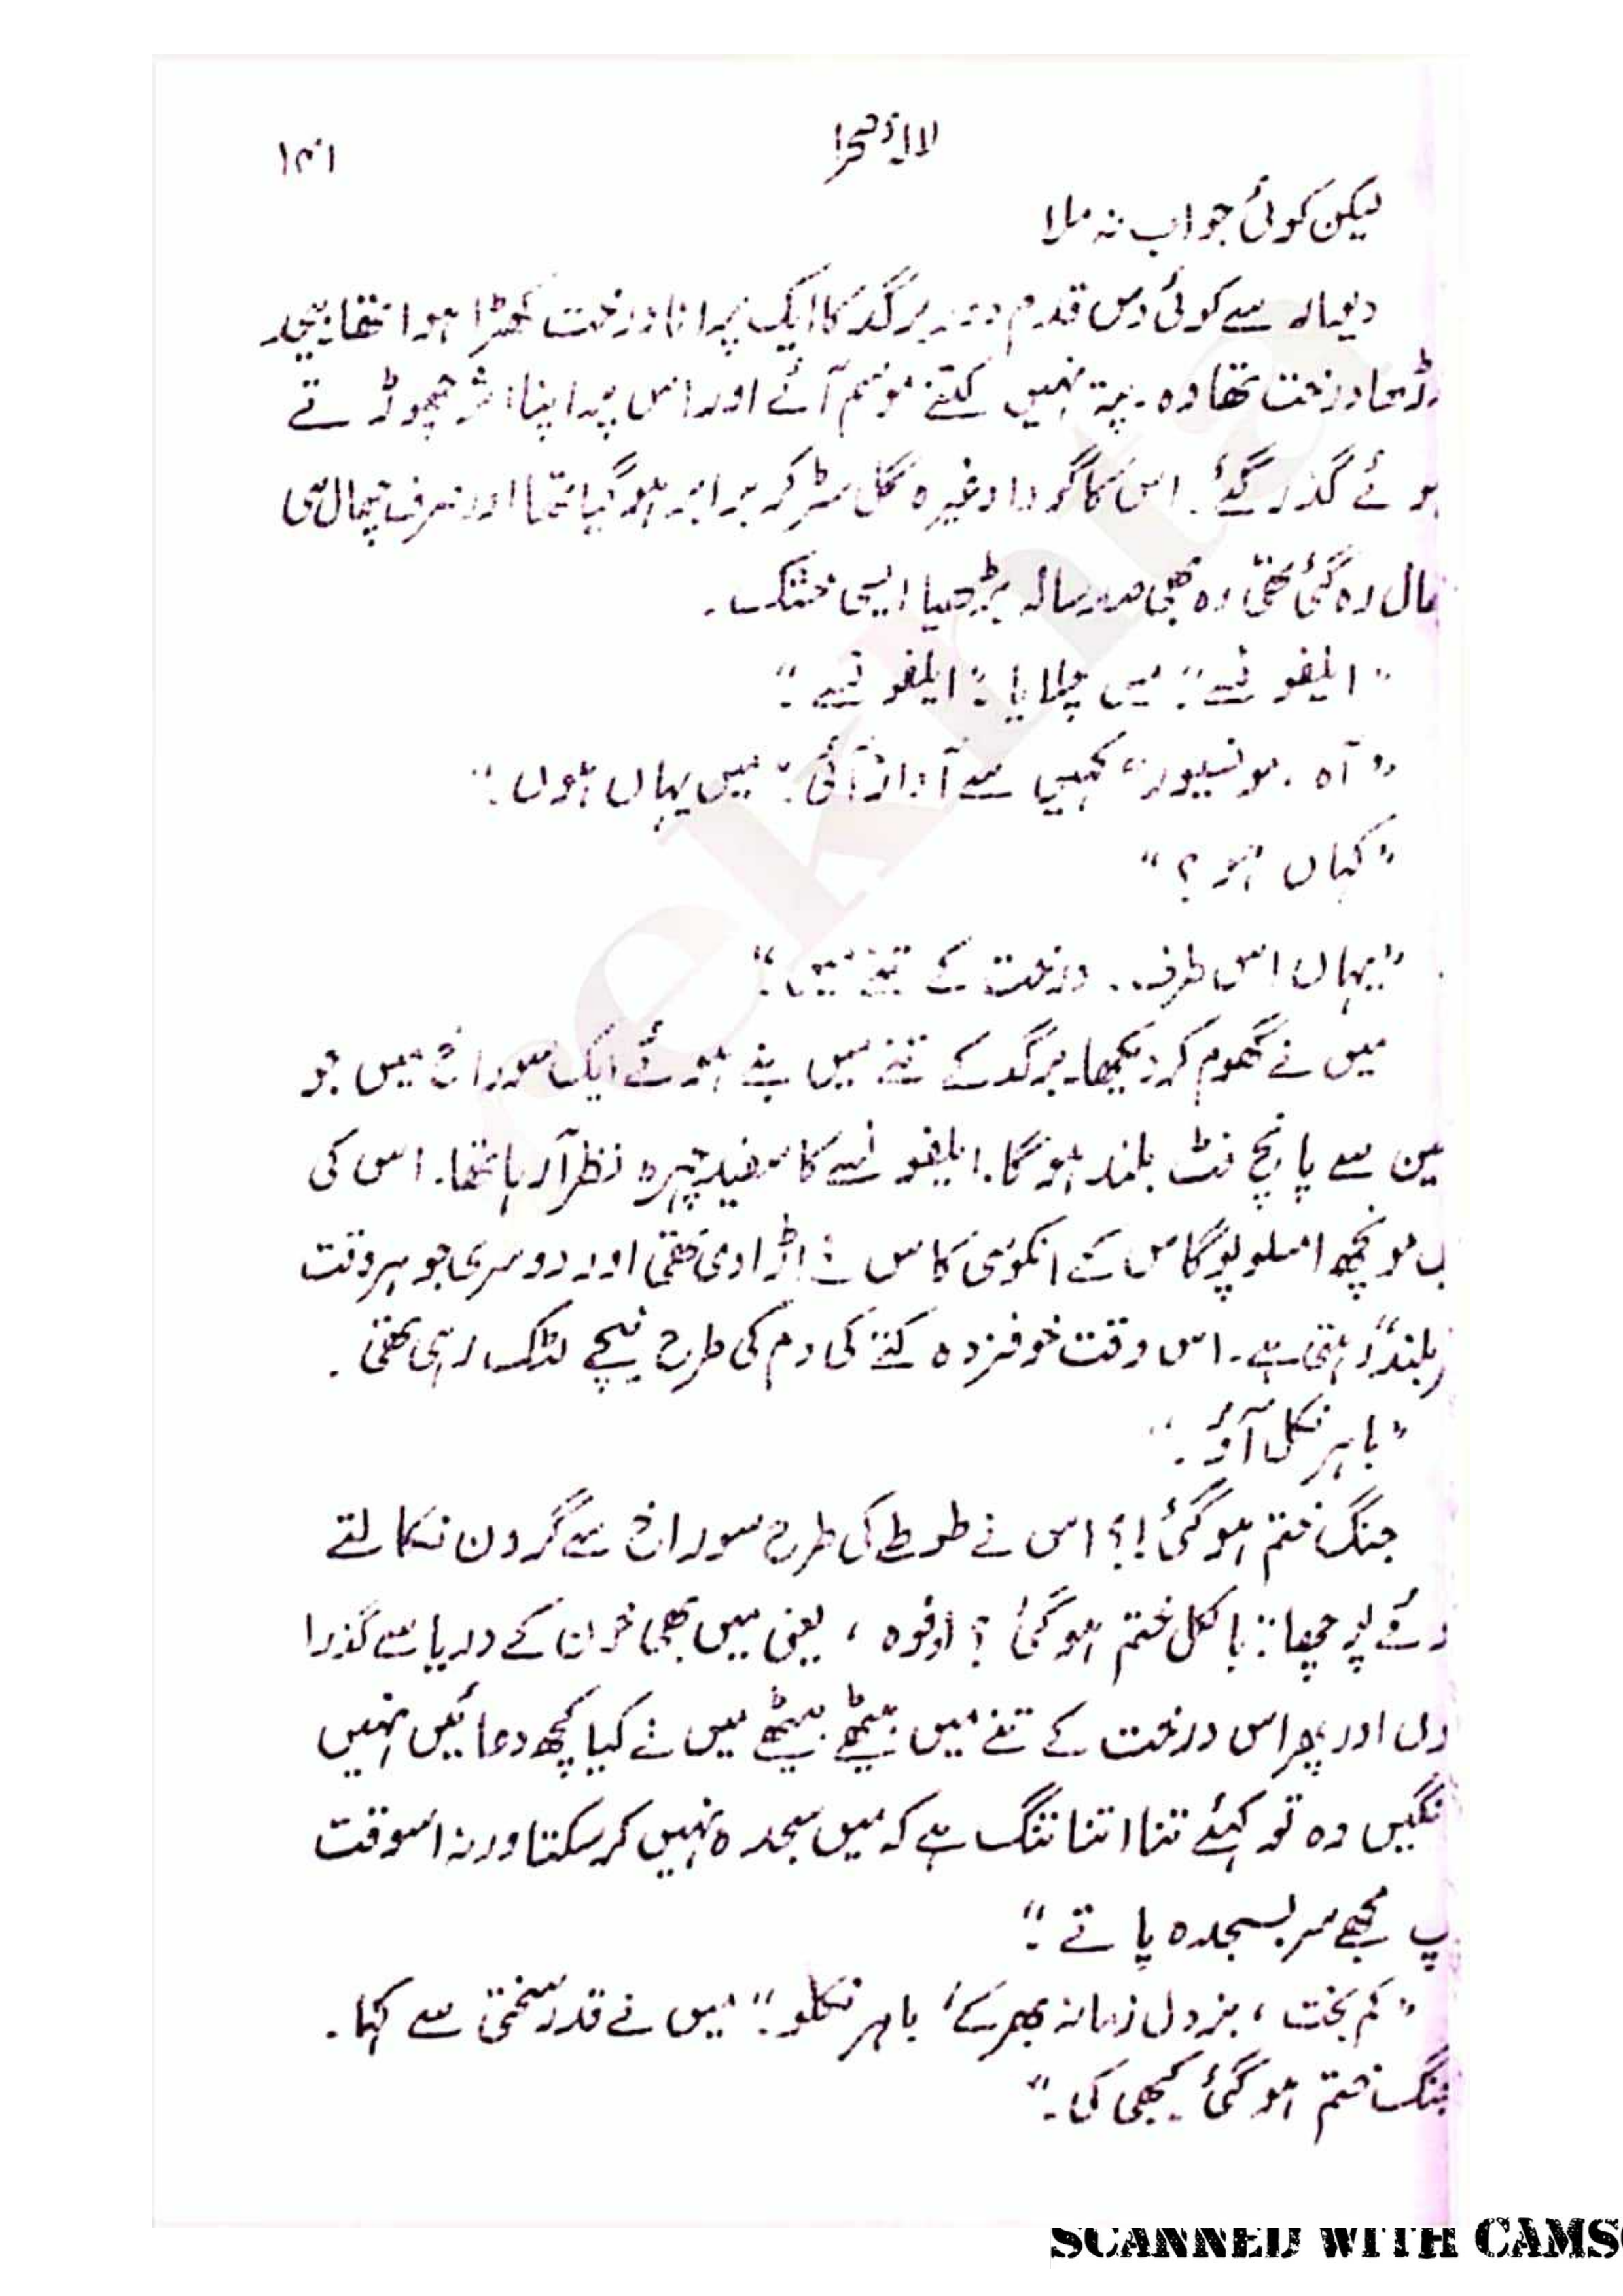 لالۂ صحرا ۱۴۱
لیکن کوئی جواب نہ ملا
دیوار سے کوئی دس قدم دور برگد کا ایک پرانا درخت کھڑا ہوا تھا بیحد
بڈھا درخت تھا وہ۔ پتہ نہیں کتنے موسم آئے اور اس پر اپنا اثر چھوڑتے
ہوئے گذر گئے۔ اس کا گودا وغیرہ گل سڑ کر برابر ہو گیا تھا اور صرف چھال ہی
چھال رہ گئی تھی وہ بھی صد سالہ بڑھیا ایسی خشک۔
”ایلفونسے“ میں چلایا ”ایلفونسے“
”آہ۔ مونسیور“ کہیں سے آواز آئی ”میں یہاں ہوں“
”کہاں ہو؟“
”یہاں اس طرف۔۔ درخت کے تنے میں“
میں نے گھوم کر دیکھا۔ برگد کے تنے میں بنے ہوئے ایک سوراخ میں جو
مین سے پانچ فٹ بلند ہو گا۔ ایلفونسے کا سفید چہرہ نظر آ رہا تھا۔ اس کی
ب مونچھ امسلوپوگاس کے انکوسی کاس نے اڑا دی تھی اور دوسری جو ہر وقت
ر بلند رہتی ہے۔ اس وقت خوفزدہ کتے کی دم کی طرح نیچے لٹک رہی تھی۔
”باہر نکل آؤ۔“
جنگ ختم ہو گئی!؟ اس نے طوطے کی طرح سوراخ سے گردن نکالتے
وئے پوچھا: بالکل ختم ہو گئی؟ اوفوہ، یعنی میں بھی خون کے دریا سے گذرا
وں اور پھر اس درخت کے تنے میں بیٹھے بیٹھے میں نے کیا کچھ دعائیں نہیں
نگیں وہ تو کہئے تنا اتنا تنگ ہے کہ میں سجدہ نہیں کر سکتا ورنہ اسوقت
پ مجھے سر بسجدہ پاتے“
”کم بخت، بزدل زمانہ بھر کے، باہر نکلو“ میں نے قدر سختی سے کہا۔
جنگ ختم ہو گئی کبھی کی۔“
SCANNED WITH CAMS